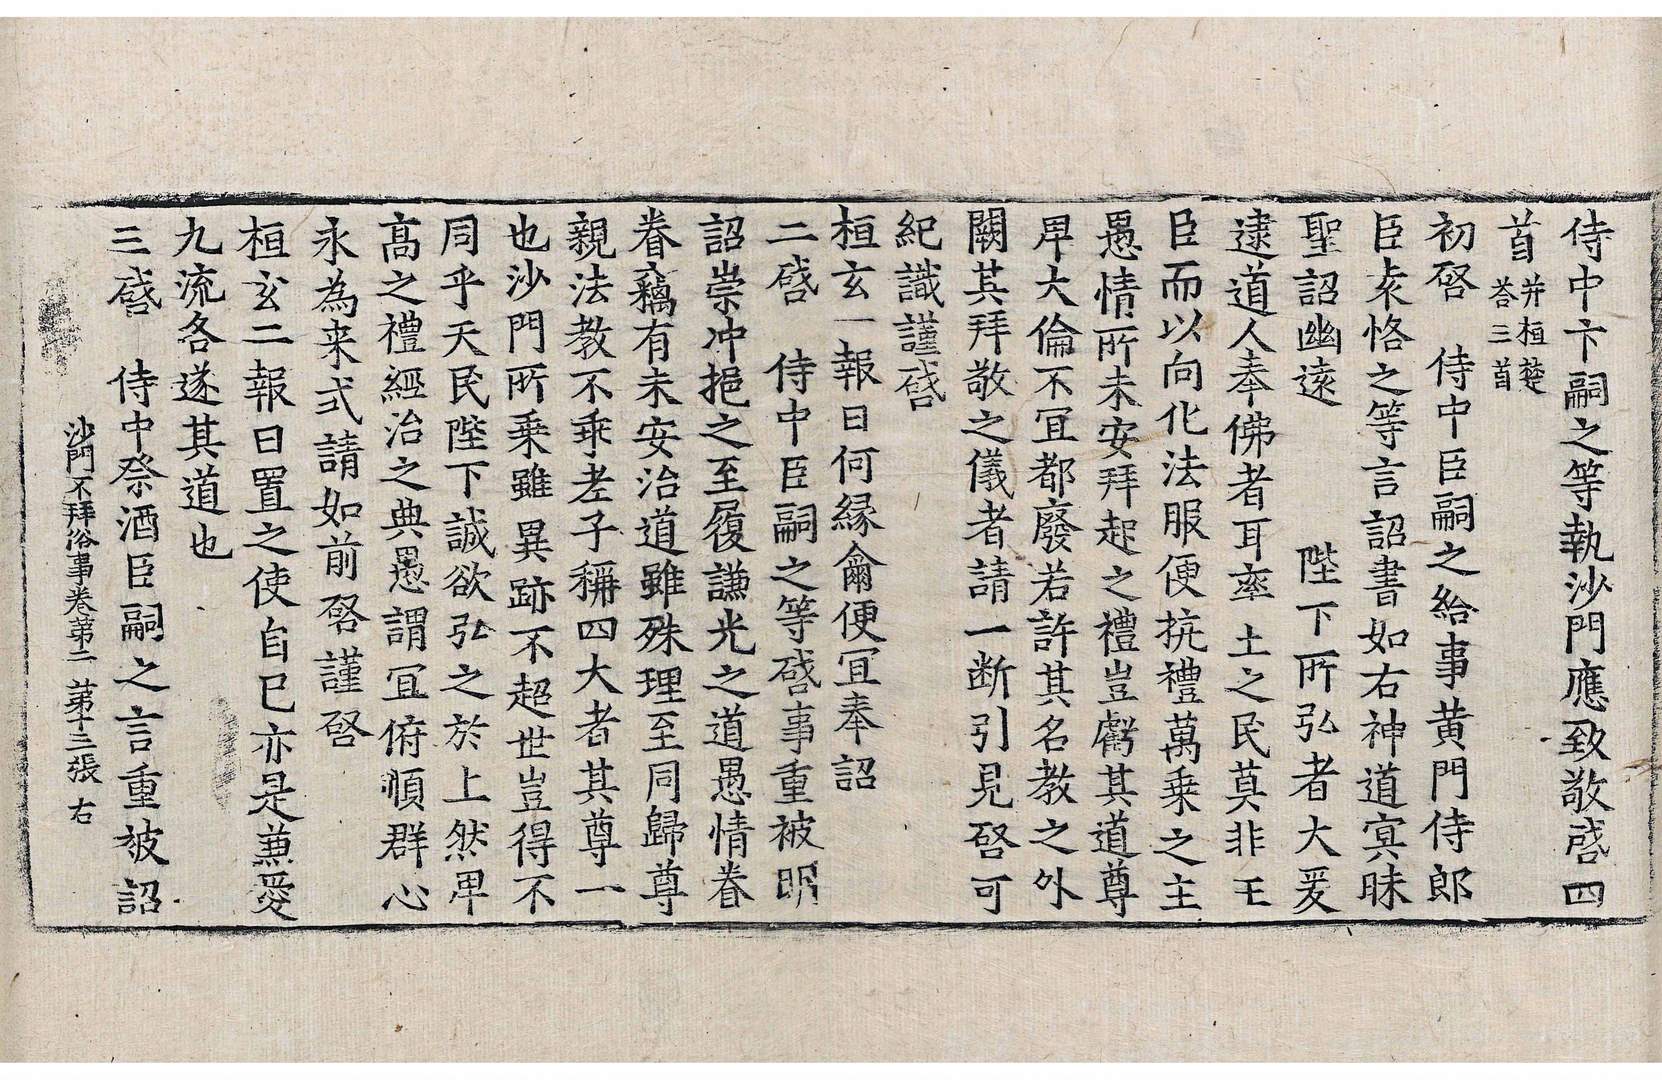 侍中卞嗣之等執沙門應致敬啓四
首 并桓楚荅三首
初啓　侍中臣嗣之給事黄門侍郎
臣袁恪之等言詔書如右神道㝠昧
聖詔幽遠　　陛下所弘者大爰
逮道人奉佛者耳率土之民莫非王
臣而以向化法服便抗禮萬乗之主
愚情所未安拜起之禮豈虧其道尊
卑大倫不冝都廢若許其名教之外
闕其拜敬之儀者請一断引見啓可
紀識謹啓
桓玄一報曰何縁尒便冝奉詔
二啓　侍中臣嗣之等啓事重被明
詔崇冲挹之至履謙光之道愚情眷
眷竊有未安治道雖殊理至同歸尊
親法教不乖老子稱四大者其尊一
也沙門所乗雖異跡不超世豈得不
同乎天民陛下誠欲弘之於上然卑
髙之禮經治之典愚謂冝俯順群心
永為来式請如前啓謹啓
桓玄二報曰置之使自已亦是兼愛
九流各遂其道也
沙門不拜俗事卷第二　第十三張　右
三啓　侍中祭酒臣嗣之言重被詔